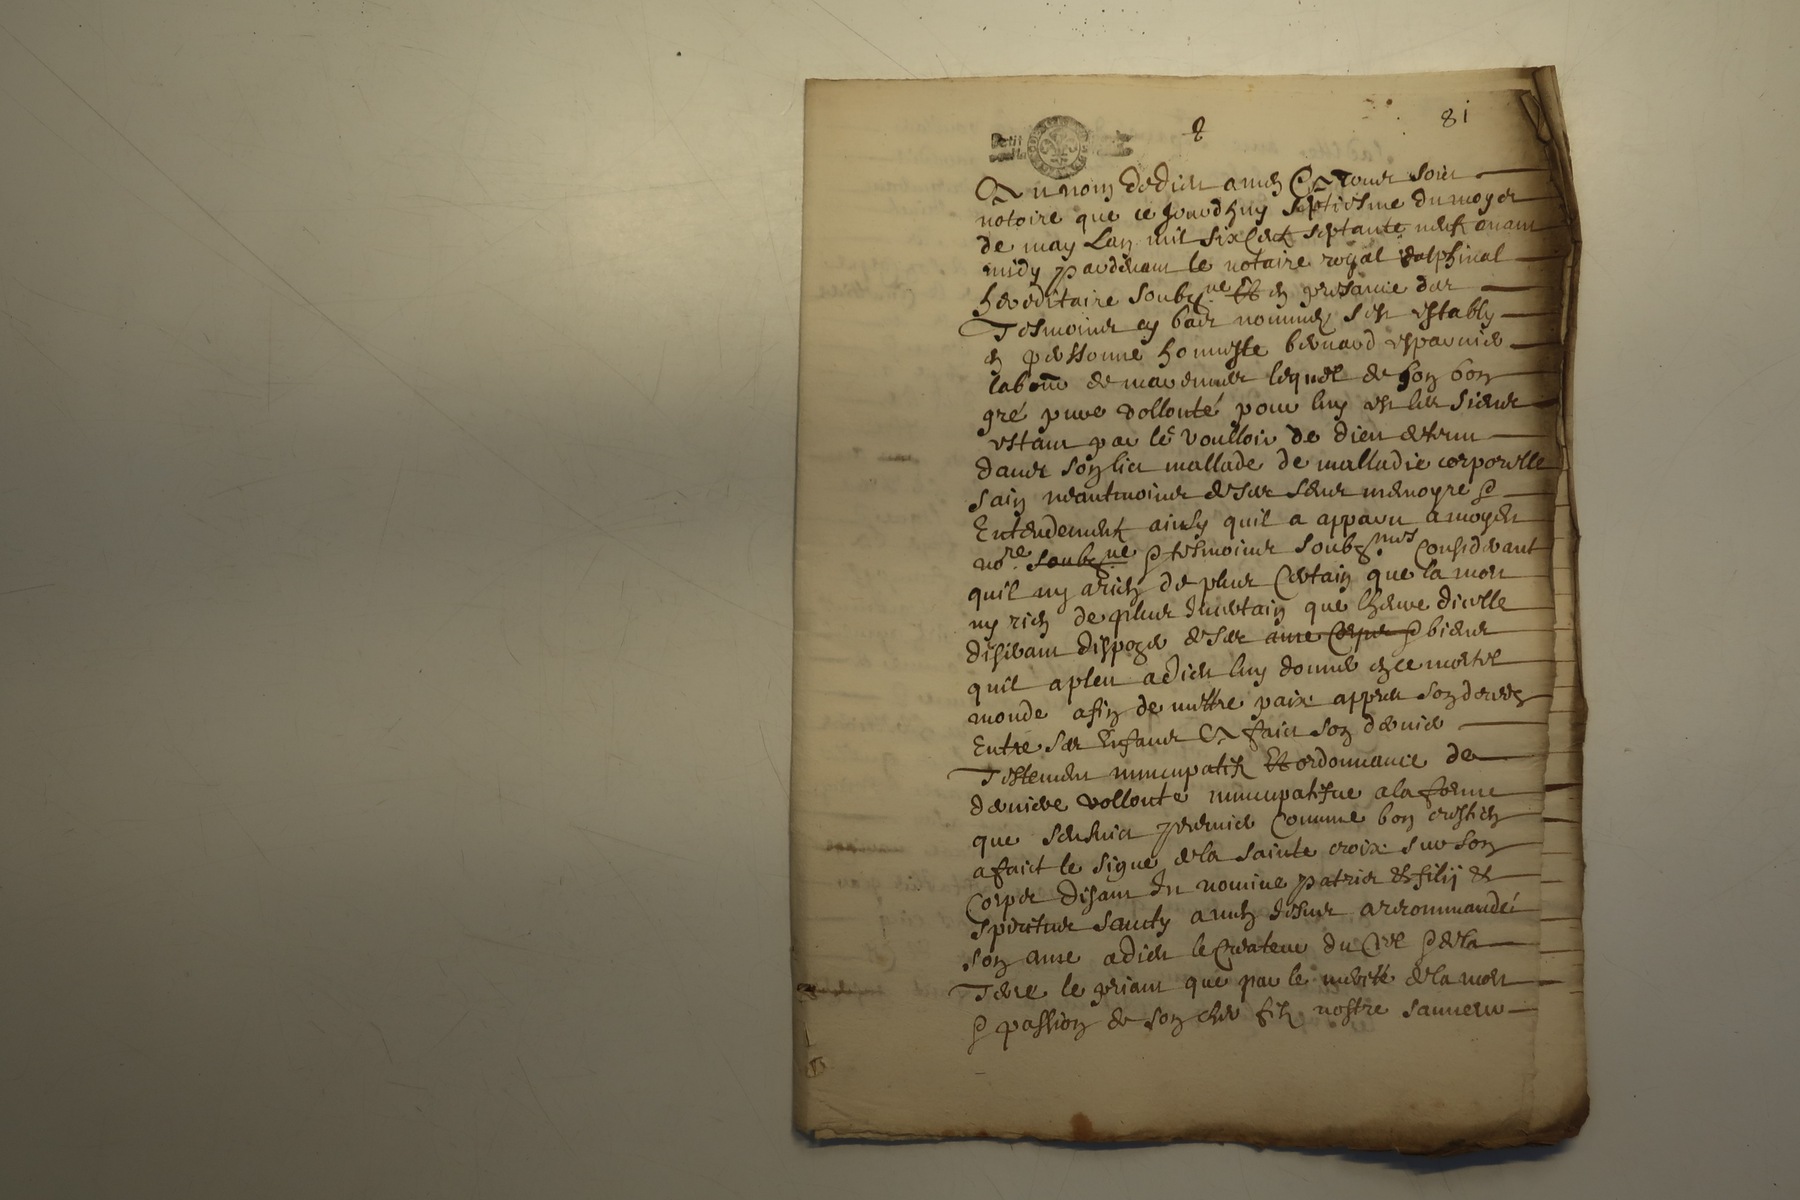 81
Au nom de dieu amen A tous soict
notoire que ce jourdhuy septiesme du moys
de may Lan mil six cent septante neuf avant
midy pardevant le notaire royal dalphinal
hereditaire soubsne et en presance des
Tesmoins cy bas nommes sest estably
en personne honneste bernard
labour de lequel de son bon
gré pure vollonté pour luy et les siens
estant par le voulloir de dieu detenu
dans son lict mallade de malladie corporelle
sain neantmoins de ses sens memoyre &
Entendement ainsy quil a apparu a moydt
nore soubsne & tesmoins soubsnes Considerant
quil ny a rien de plus Certain que la mort
ny rien de plus Incertain que lheure dicelle
desirant dispozer de ses ame corps & biens
quil a pleu a dieu luy donner en ce mortel
monde afin de mettre paix appres son deces
Entre ses Enfans A faict son dernier
Testement nuncupatif et ordonnance de
derniere vollonté nuncupatifve a la forme
que sensuict premier Comme bon crestien
a faict le signe de la sainte croix sur son
Corps disant In nomine patris et filij et
spiritus sancty amen Jesus a recommandé
son ame a dieu le Createur du Ciel & de la
Terre le priant que par le merité de la mort
& passion de son cher filz nostre sauveur